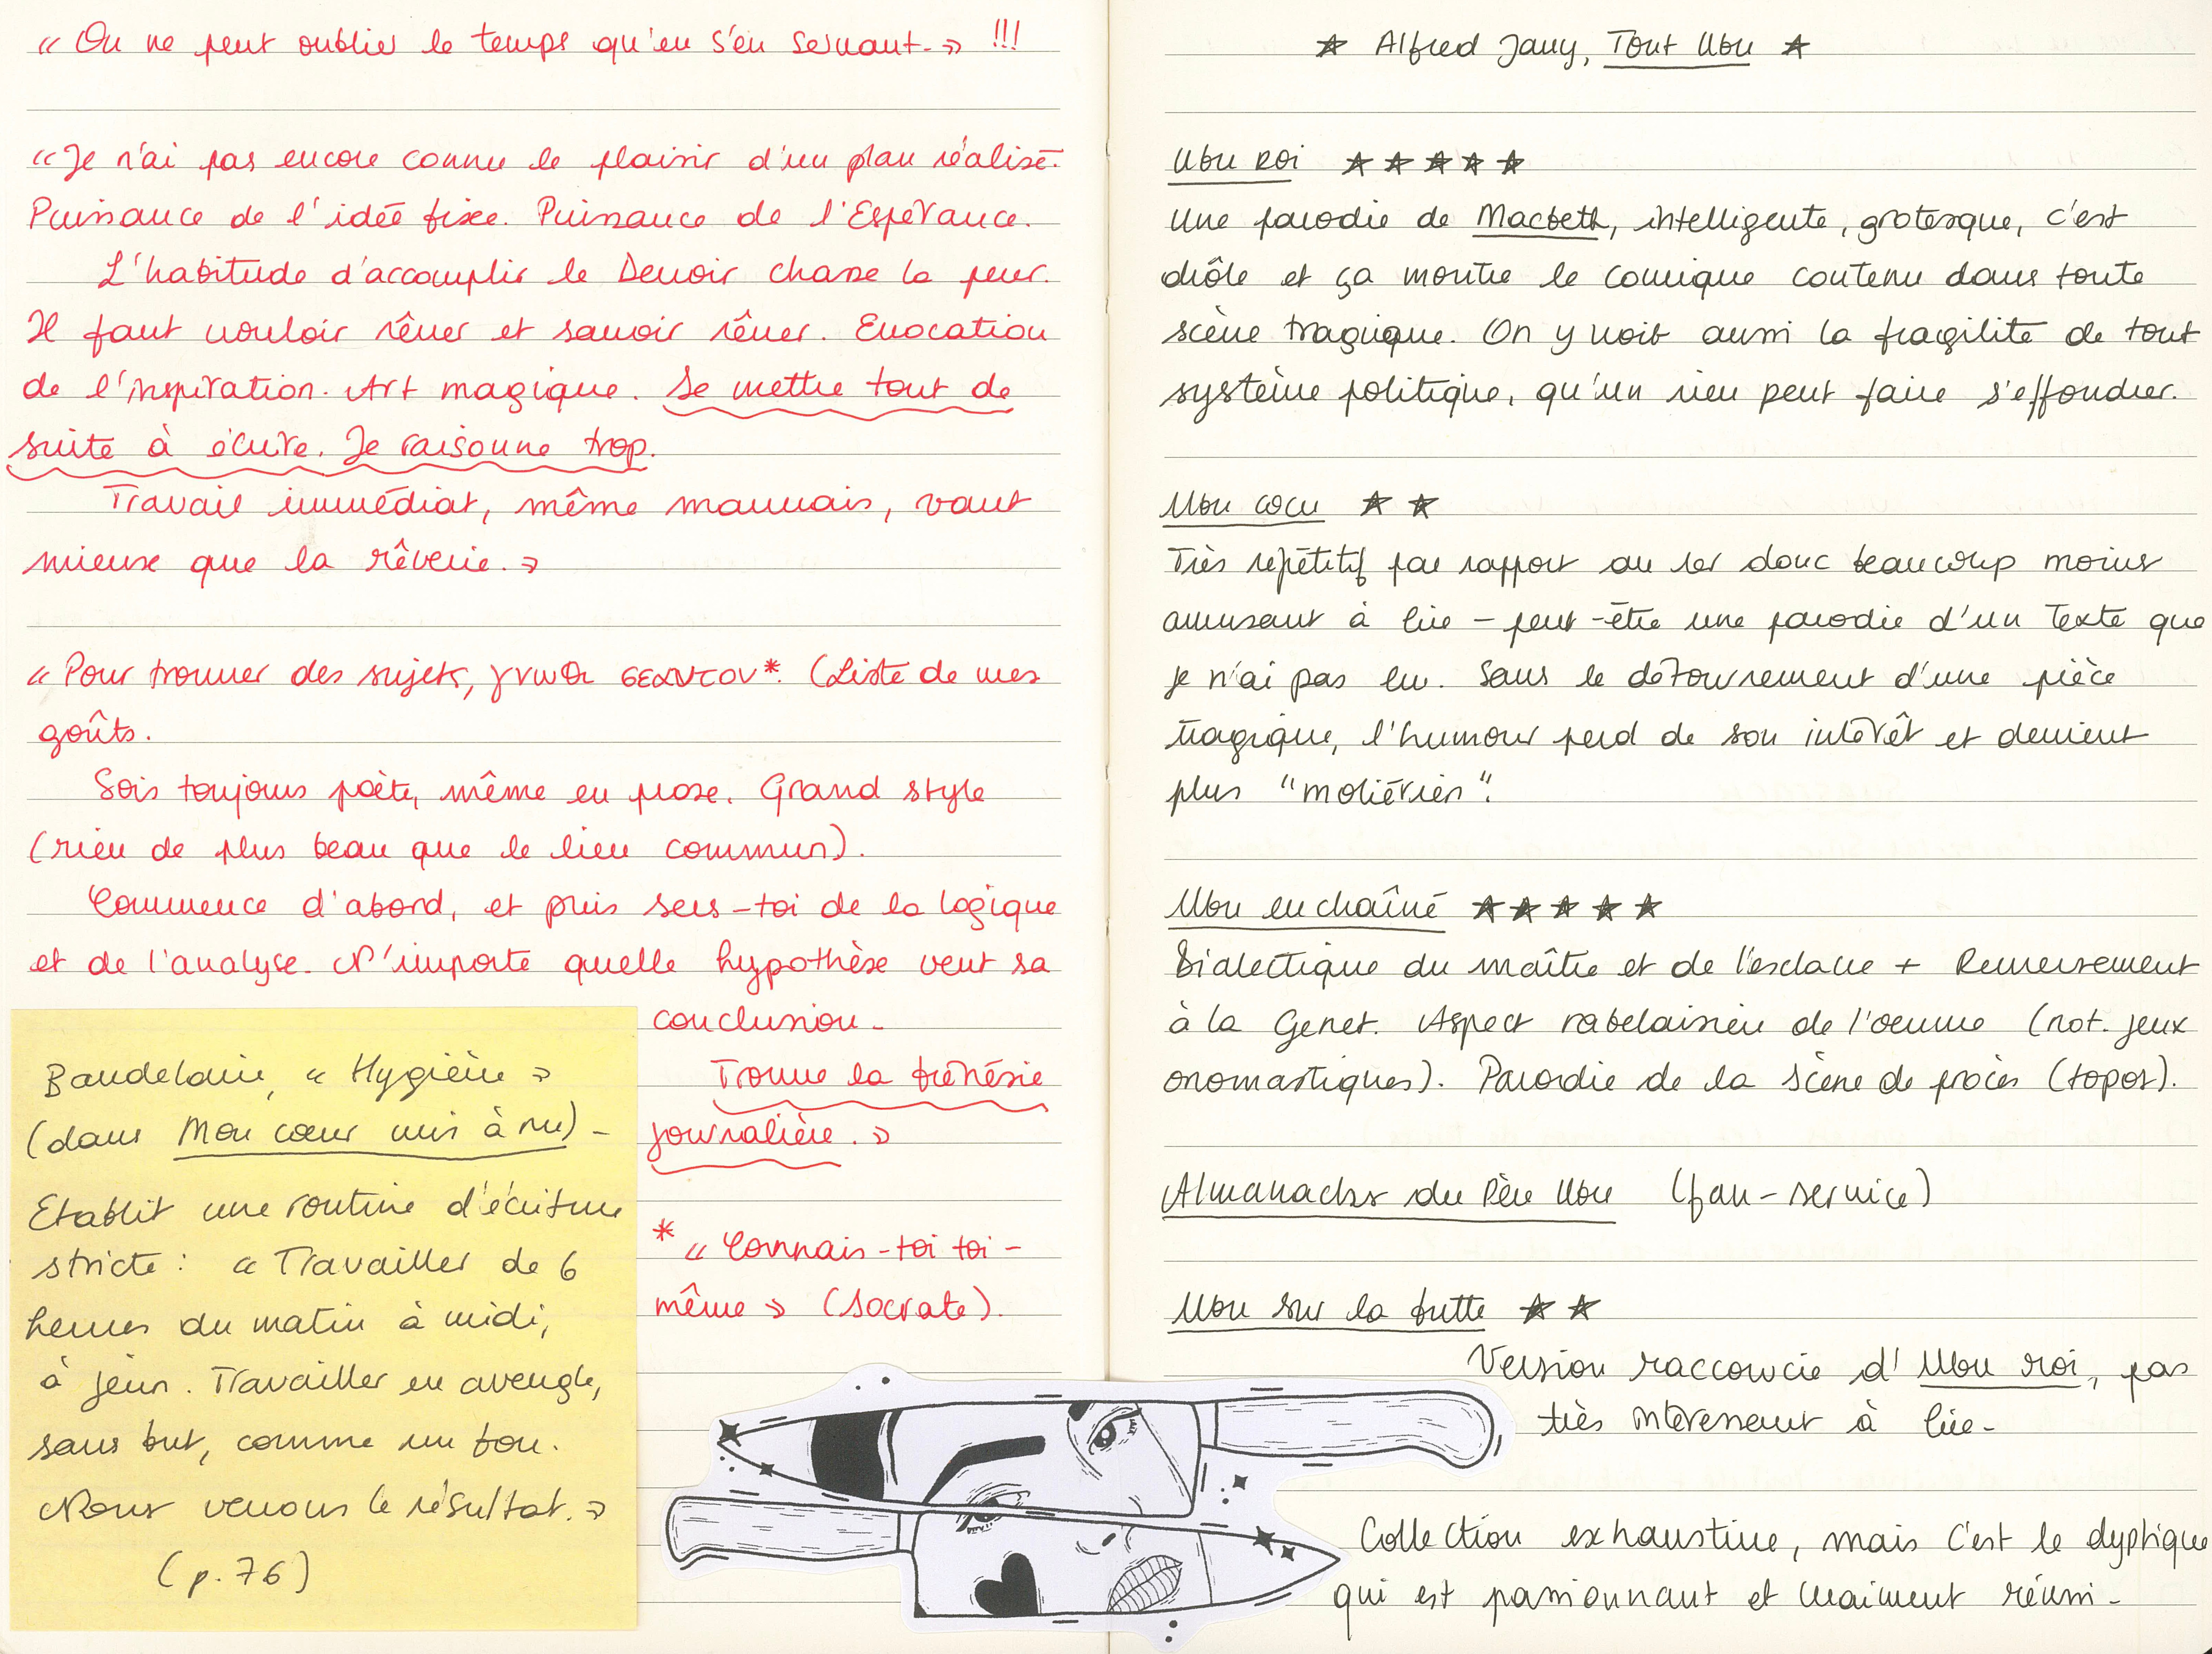 « On ne peut oublier le temps qu'en s'en servant. » !!!
« Je n'ai pas encore connu le plaisir d'un plan réalisé.
Puissance de l'idée fixe. Puissance de l'Espérance.
L'habitude d'accomplir le Devoir chasse la peur.
Il faut vouloir rêver et savoir rêver. Evocation
de l'inspiration. Art magique. Se mettre tout de
suite à écrire. Je raisonne trop.
Travail immédiat, même mauvais, vaut
mieux que la rêverie. »
« Pour trouver des sujets, γνωθι σεαυτον*. (Liste de mes
goûts.
Sois toujours poète, même en prose. Grand style
(rien de plus beau que le lieu commun).
Commence d'abord, et puis sers-toi de la logique
et de l'analyse. N'importe quelle hypothèse veut sa
conclusion.
Trouve la frénésie
journalière. »
* « Connais-toi toi-
même » (Socrate).
Baudelaire, « Hygiène »
(dans Mon cœur mis à nu) -
Etablit une routine d'écriture
stricte : « Travailler de 6
heures du matin à midi,
à jeun. Travailler en aveugle,
sans but, comme un fou.
Nous verrons le résultat. »
(p. 76)
★ Alfred Jarry, Tout Ubu ★
Ubu Roi ★ ★ ★ ★ ★
Une parodie de Macbeth, intelligente, grotesque, c'est
drôle et ça montre le comique contenu dans toute
scène tragique. On y voit aussi la fragilité de tout
système politique, qu'un rien peut faire s'effondrer.
Ubu cocu ★ ★
Très répétitif par rapport au 1er donc beaucoup moins
amusant à lire - peut-être une parodie d'un texte que
je n'ai pas lu. Sans le détournement d'une pièce
tragique, l'humour perd de son intérêt et devient
plus "moliérien".
Ubu enchaîné ★ ★ ★ ★ ★
Dialectique du maître et de l'esclave + Renversement
à la Genet. Aspect rabelaisien de l'oeuvre (not. jeux
onomastiques). Parodie de la scène de procès (topos).
Almanachs du Père Ubu (fan-service)
Ubu sur la butte ★ ★
Version raccourcie d'Ubu roi, pas
très intéressant à lire.
Collection exhaustive, mais c'est le dyptique
qui est passionnant et vraiment réussi.